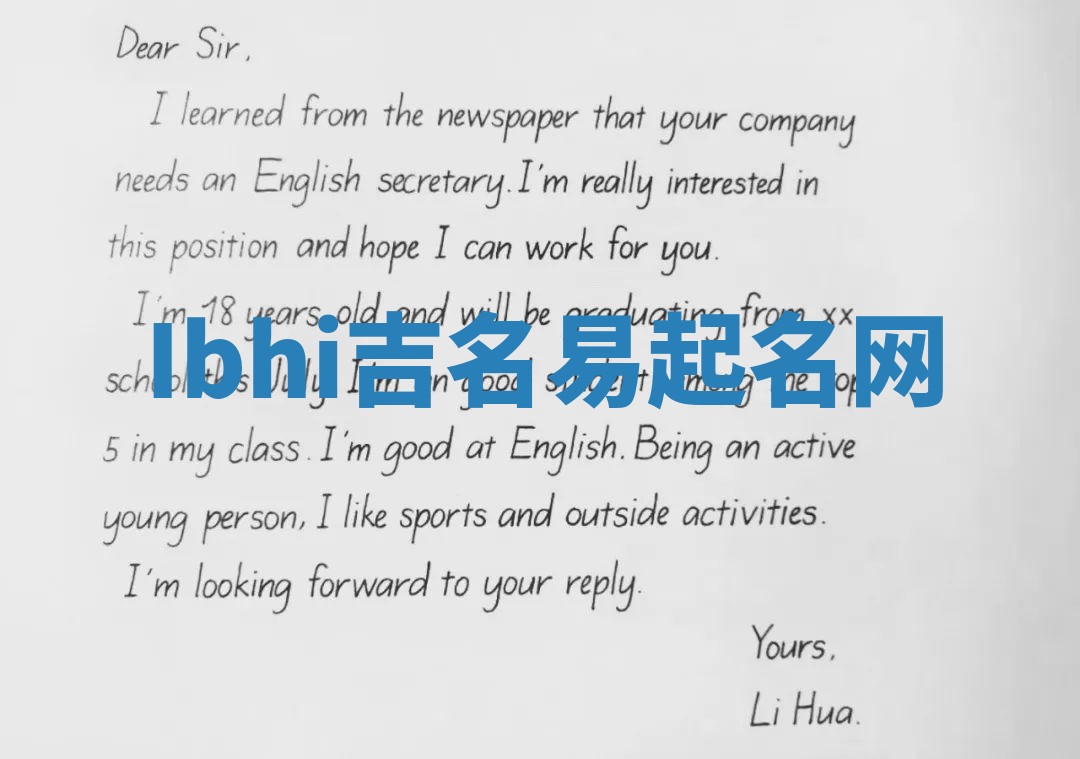 Dear Sir,
I learned from the newspaper that your company
needs an English secretary. I'm really interested in
this position and hope I can work for you.
I'm 18 years old and will be graduating from xx
lbhi吉名易起名网
school this July. I'm an good student among the top
5 in my class. I'm good at English. Being an active
young person, I like sports and outside activities.
I'm looking forward to your reply.
Yours,
Li Hua.